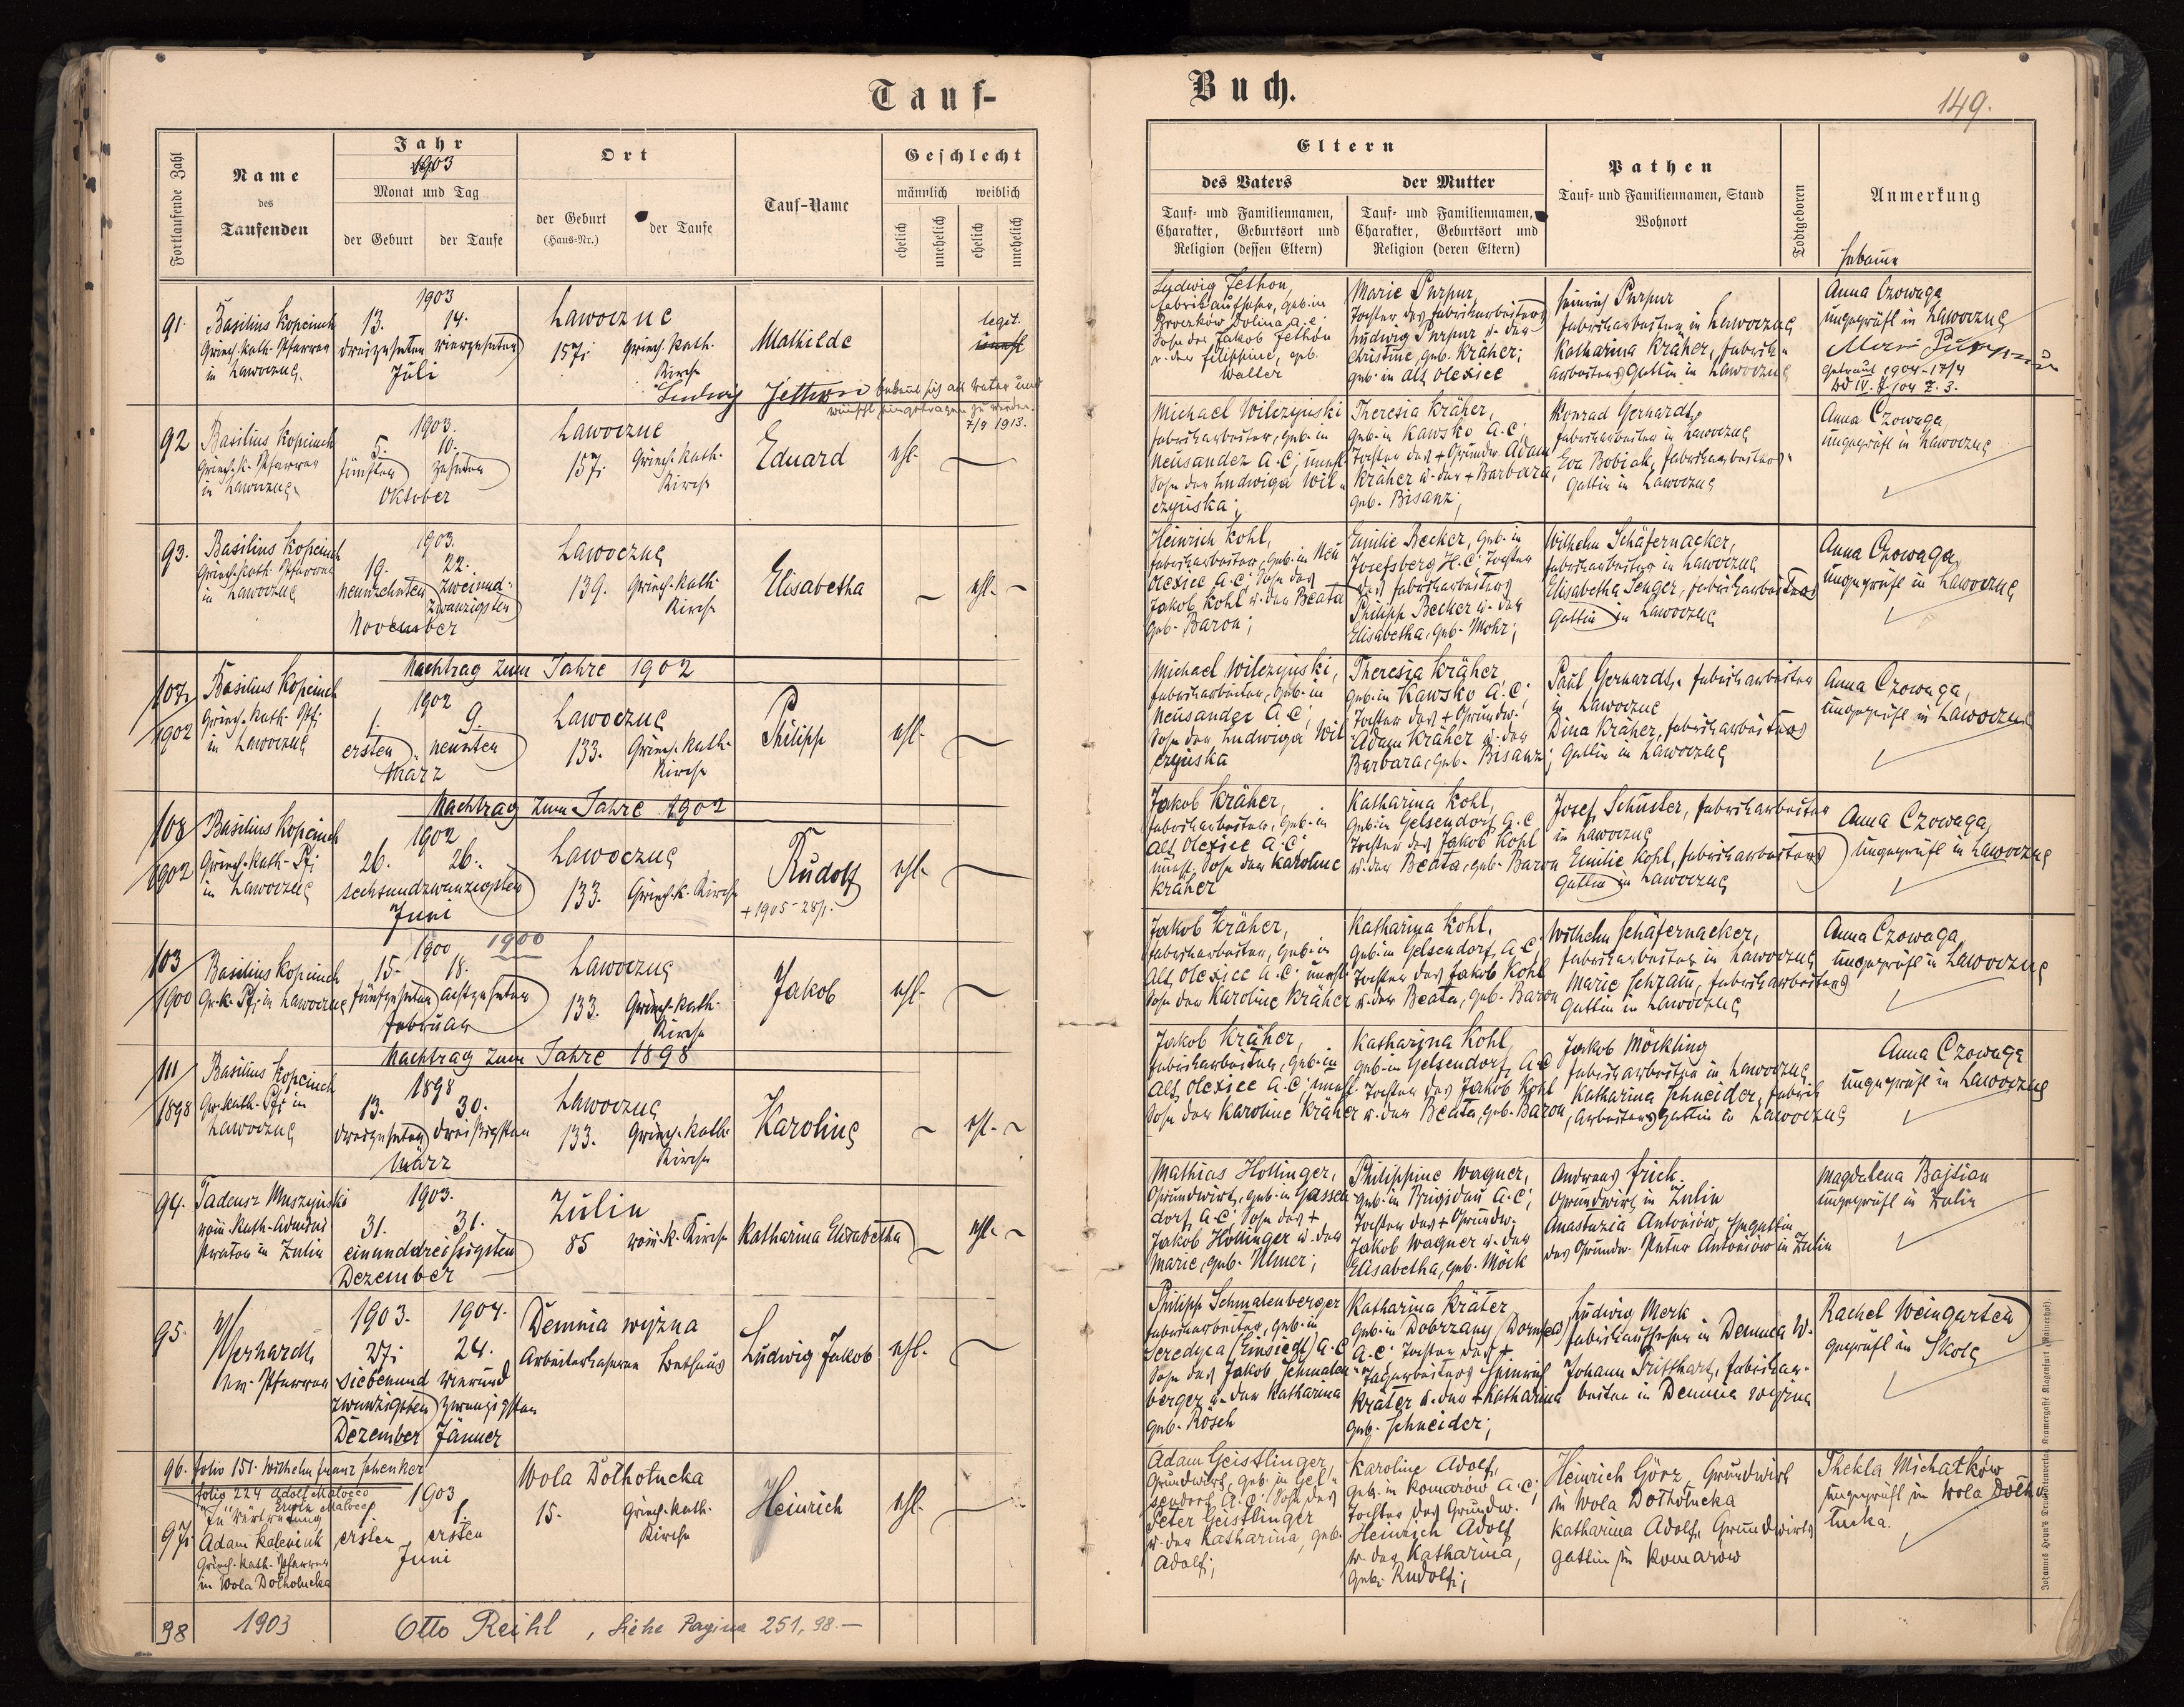 Tauf-
Buch.
149.
Fortlaufende Zahl
Name
des
Taufenden
Jahr
1903
Monat und Tag
der Geburt
der Taufe
Ort
der Geburt
(Haus-Nr.)
der Taufe
Tauf-Name
Geschlecht
männlich
weiblich
ehelich
unehelich
ehelich
unehelich
Eltern
des Vaters
der Mutter
Tauf- und Familiennamen,
Charakter, Geburtsort und
Religion (dessen Eltern)
Tauf- und Familiennamen,
Charakter, Geburtsort und
Religion (deren Eltern)
Pathen
Tauf- und Familiennamen, Stand
Wohnort
Todtgeboren
Anmerkung
Hebamme
91.
Basilius Kopciuch
Griech. kath. Pfarrer
in Lawoczne.
1903
13. 14.
dreizehnten vierzehnten
Juli
Lawoczne
157; Griech. kath.
Kirche
Mathilde
legit.
unehl
Ludwig Jethon bekennt sich als Vater und
wünscht eingetragen zu werden.
7/9 1913.
Ludwig Jethon,
Fabrikaufseher, geb. in
Broczków Dolina, A.C.
Sohn des Jakob Jethon
u. der Filippine, geb.
Walter
Marie Purpur
Tochter des Fabrikarbeiters
Ludwig Purpur u. der
Christine, geb. Kräher;
geb. in Alt Olexice
Heinrich Purpur
Fabrikarbeiter in Lawoczne
Katharina Kräher, Fabrik-
arbeiters Gattin in Lawoczne
Anna Czowaga
ungeprüft in Lawoczne
Getraut 1904-17/4
92
Basilius Kopciuch
Griech. k. Pfarrer
in Lawoczne
1903.
5. 10.
fünften zehnten
Oktober
Lawoczne
157; Griech. kath.
Kirche
Eduard
ehl.
Michael Wilczynski
Fabrikarbeiter, geb. in
Neusandez A.C; unehl.
Sohn der Ludwiga Wil-
czynska;
Theresia Kräher,
geb. in Kawsko A.C;
Tochter des + Grundw. Adam
Kräher u. der + Barbara,
geb. Bisanz;
Konrad Gerhardt,
Fabrikarbeiter in Lawoczne
Eva Bobiak, Fabrikarbeiters-
Gattin in Lawoczne
Anna Czowaga,
ungeprüft in Lawoczne
93.
Basilius Kopciuch
Griech. kath. Pfarrer
in Lawoczne
1903.
19. 22.
neunzehnten zweiund-
zwanzigsten
November
Lawoczne
139. Griech. kath.
Kirche
Elisabetha
ehl.
Heinrich Kohl,
Fabrikarbeiter, geb. in Neu
Olexice A.C; Sohn des
Jakob Kohl u. der Beata
geb. Baron;
Emilie Becker, geb. in
Josefsberg H.C; Tochter
des Fabrikarbeiters
Philipp Becker u. der
Elisabetha, geb. Mohr;
Wilhelm Schäfernacker,
Fabrikarbeiter in Lawoczne
Elisabetha Senger, Fabrikarbeiters
Gattin in Lawoczne
Anna Czowaga,
ungeprüft in Lawoczne
Nachtrag zum Jahre 1902
107/1902
Basilius Kopciuch
Griech. kath. Pf;
in Lawoczne
1902
1. 9.
ersten neunten
März
Lawoczne
133. Griech. kath.
Kirche
Philipp
ehl.
Michael Wilczynski,
Fabrikarbeiter, geb. in
Neusandez A.C;
Sohn der Ludwiga Wil
czynska
Theresia Kräher
geb. in Kawsko A.C;
Tochter des + Grundw.
Adam Kräher u. der
Barbara, geb. Bisanz;
Paul Gerhardt, Fabrikarbeiter
in Lawoczne
Dina Kräher, Fabrikarbeiters
Gattin in Lawoczne
Anna Czowaga,
ungeprüft in Lawoczne
Nachtrag zum Jahre 1902
108/1902
Basilius Kopciuch
Griech. kath. Pf;
in Lawoczne
1902
26. 26.
sechsundzwanzigsten
Juni
Lawoczne
133. Griech. k. Kirche
Rudolf
+ 1905-28/1.
ehl.
Jakob Kräher,
Fabrikarbeiter, geb. in
Alt Olexice A.C;
unehl. Sohn der Karoline
Kräher
Katharina Kohl,
geb. in Gelsendorf A.C
Tochter des Jakob Kohl
u. der Beata, geb. Baron
Josef Schuster, Fabrikarbeiter
in Lawoczne
Emilie Kohl, Fabrikarbeiters
Gattin in Lawoczne
Anna Czowaga,
ungeprüft in Lawoczne
103/1900
Basilius Kopciuch
Gr. k. Pf; in Lawoczne
1900 1900
15. 18.
fünfzehnten achtzehnten
Februar
Lawoczne
133. Griech. kath.
Kirche
Jakob
ehl.
Jakob Kräher,
Fabrikarbeiter, geb. in
Alt Olexice A.C; unehl.
Sohn der Karoline Kräher
Katharina Kohl,
geb. in Gelsendorf, A.C;
Tochter des Jakob Kohl
u. der Beata, geb. Baron
Wilhelm Schäfernacker,
Fabrikarbeiter in Lawoczne
Marie Schram, Fabrikarbeiters
Gattin in Lawoczne
Anna Czowaga,
ungeprüft in Lawoczne
Nachtrag zum Jahre 1898
111/1898
Basilius Kopciuch
Gr. kath. Pf; in
Lawoczne
1898
13. 30.
dreizehnten dreißigsten
März
Lawoczne
133. Griech. kath.
Kirche
Karoline
ehl.
Jakob Kräher,
Fabrikarbeiter, geb. in
Alt Olexice A.C; unehl.
Sohn der Karoline Kräher
Katharina Kohl
geb. in Gelsendorf, A.C
Tochter des Jakob Kohl
u. der Beata, geb. Baron,
Jakob Möckling
Fabrikarbeiter in Lawoczne
Katharina Schneider, Fabrik
arbeiters Gattin in Lawoczne
Anna Czowaga
ungeprüft in Lawoczne
94.
Tadeusz Muszynski
röm. kath. Admini
strator in Zulin
1903.
31. 31.
einunddreißigsten
Dezember
Zulin
85 röm. k. Kirche
Katharina Elisabetha
ehl.
Mathias Hollinger,
Grundwirt, geb. in Gassen
dorf, A.C; Sohn des +
Jakob Hollinger u. der
Marie, geb. Ulmer;
Philippine Wagner,
geb. in Brigidau A.C;
Tochter des + Grundw.
Jakob Wagner u. der
Elisabetha, geb. Möck
Andreas Frick
Grundwirt in Zulin
Anastazia Antoniów, Ehegattin
des Grundw. Peter Antoniów in Zulin
Magdalena Bajtian
ungeprüft in Zulin
95.
Gerhardt,
ev. Pfarrer
1903. 1904.
27; 24.
siebenund vierund
zwanzigsten zwanzigsten
Dezember Jänner
Demnia wyżna
Arbeiterkaserne Bethaus
Ludwig Jakob
ehl.
Philipp Schmalenberger
Fabrikarbeiter, geb. in
Seredyca (Einsiedl) A.C
Sohn des Jakob Schmalen
berger u. der Katharina
geb. Rösch
Katharina Kräter
geb. in Dobrzany (Dornfeld)
A.C; Tochter des +
Tagarbeiters Heinrich
Kräter u. der + Katharina
geb. Schneider;
Ludwig Merk
Fabrikaufseher in Demnia W.
Johann Tritthart, Fabrikar-
beiter in Demnia wyżna
Rachel Weingarten
geprüft in Skole
96. folio 151. Wilhelm Franz Schenker
folio 224 Adolf Malocco
97;
Adam Kaleniuk
Griech. kath. Pfarrer
in Wola Dołhołucka
1903
1. 1.
ersten ersten
Juni
Wola Dołhołucka
15. Griech. kath.
Kirche
Heinrich
ehl.
Adam Geistlinger,
Grundwirt, geb. in Gel-
sendorf, A.C; Sohn des
Peter Geistlinger
u. der Katharina, geb.
Adolf;
Karoline Adolf,
geb. in Komarów A.C;
Tochter des Grundw.
Heinrich Adolf
u. der Katharina,
geb. Rudolf;
Heinrich Görz, Grundwirt
in Wola Dołhołucka
Katharina Adolf, Grundwirts
gattin in Komarów
Thekla Michałków
ungeprüft in Wola Dołho
łucka.
98
1903
Otto Reihl, Siehe Pagina 251, 98.—